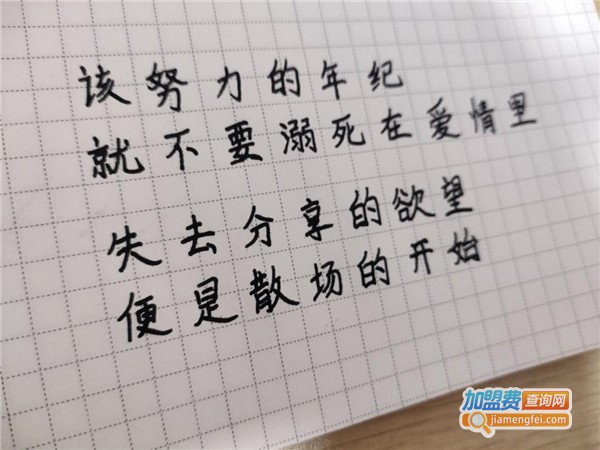 该努力的年纪
就不要溺死在爱情里
失去分享的欲望
便是散场的开始
加盟费查询网
jiamengfei.com